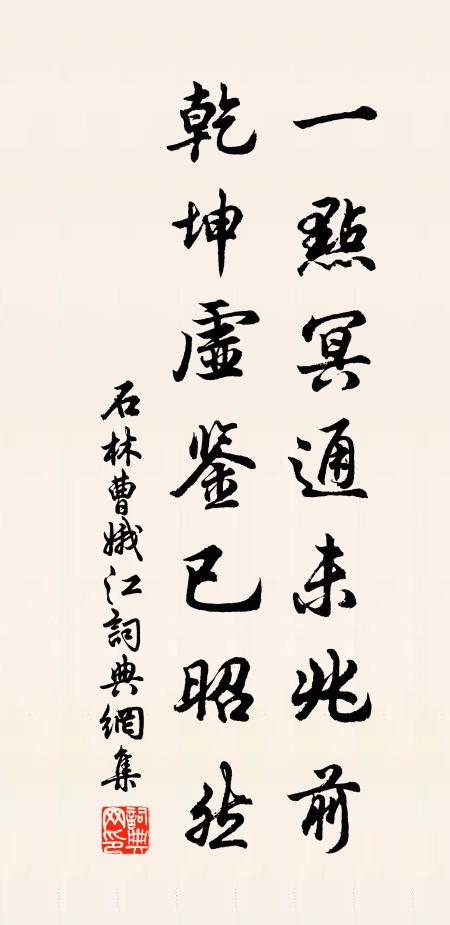 一點冥通未兆前
乾坤虛鉴已昭然
石林曹娥江詞典網集
詞典网印